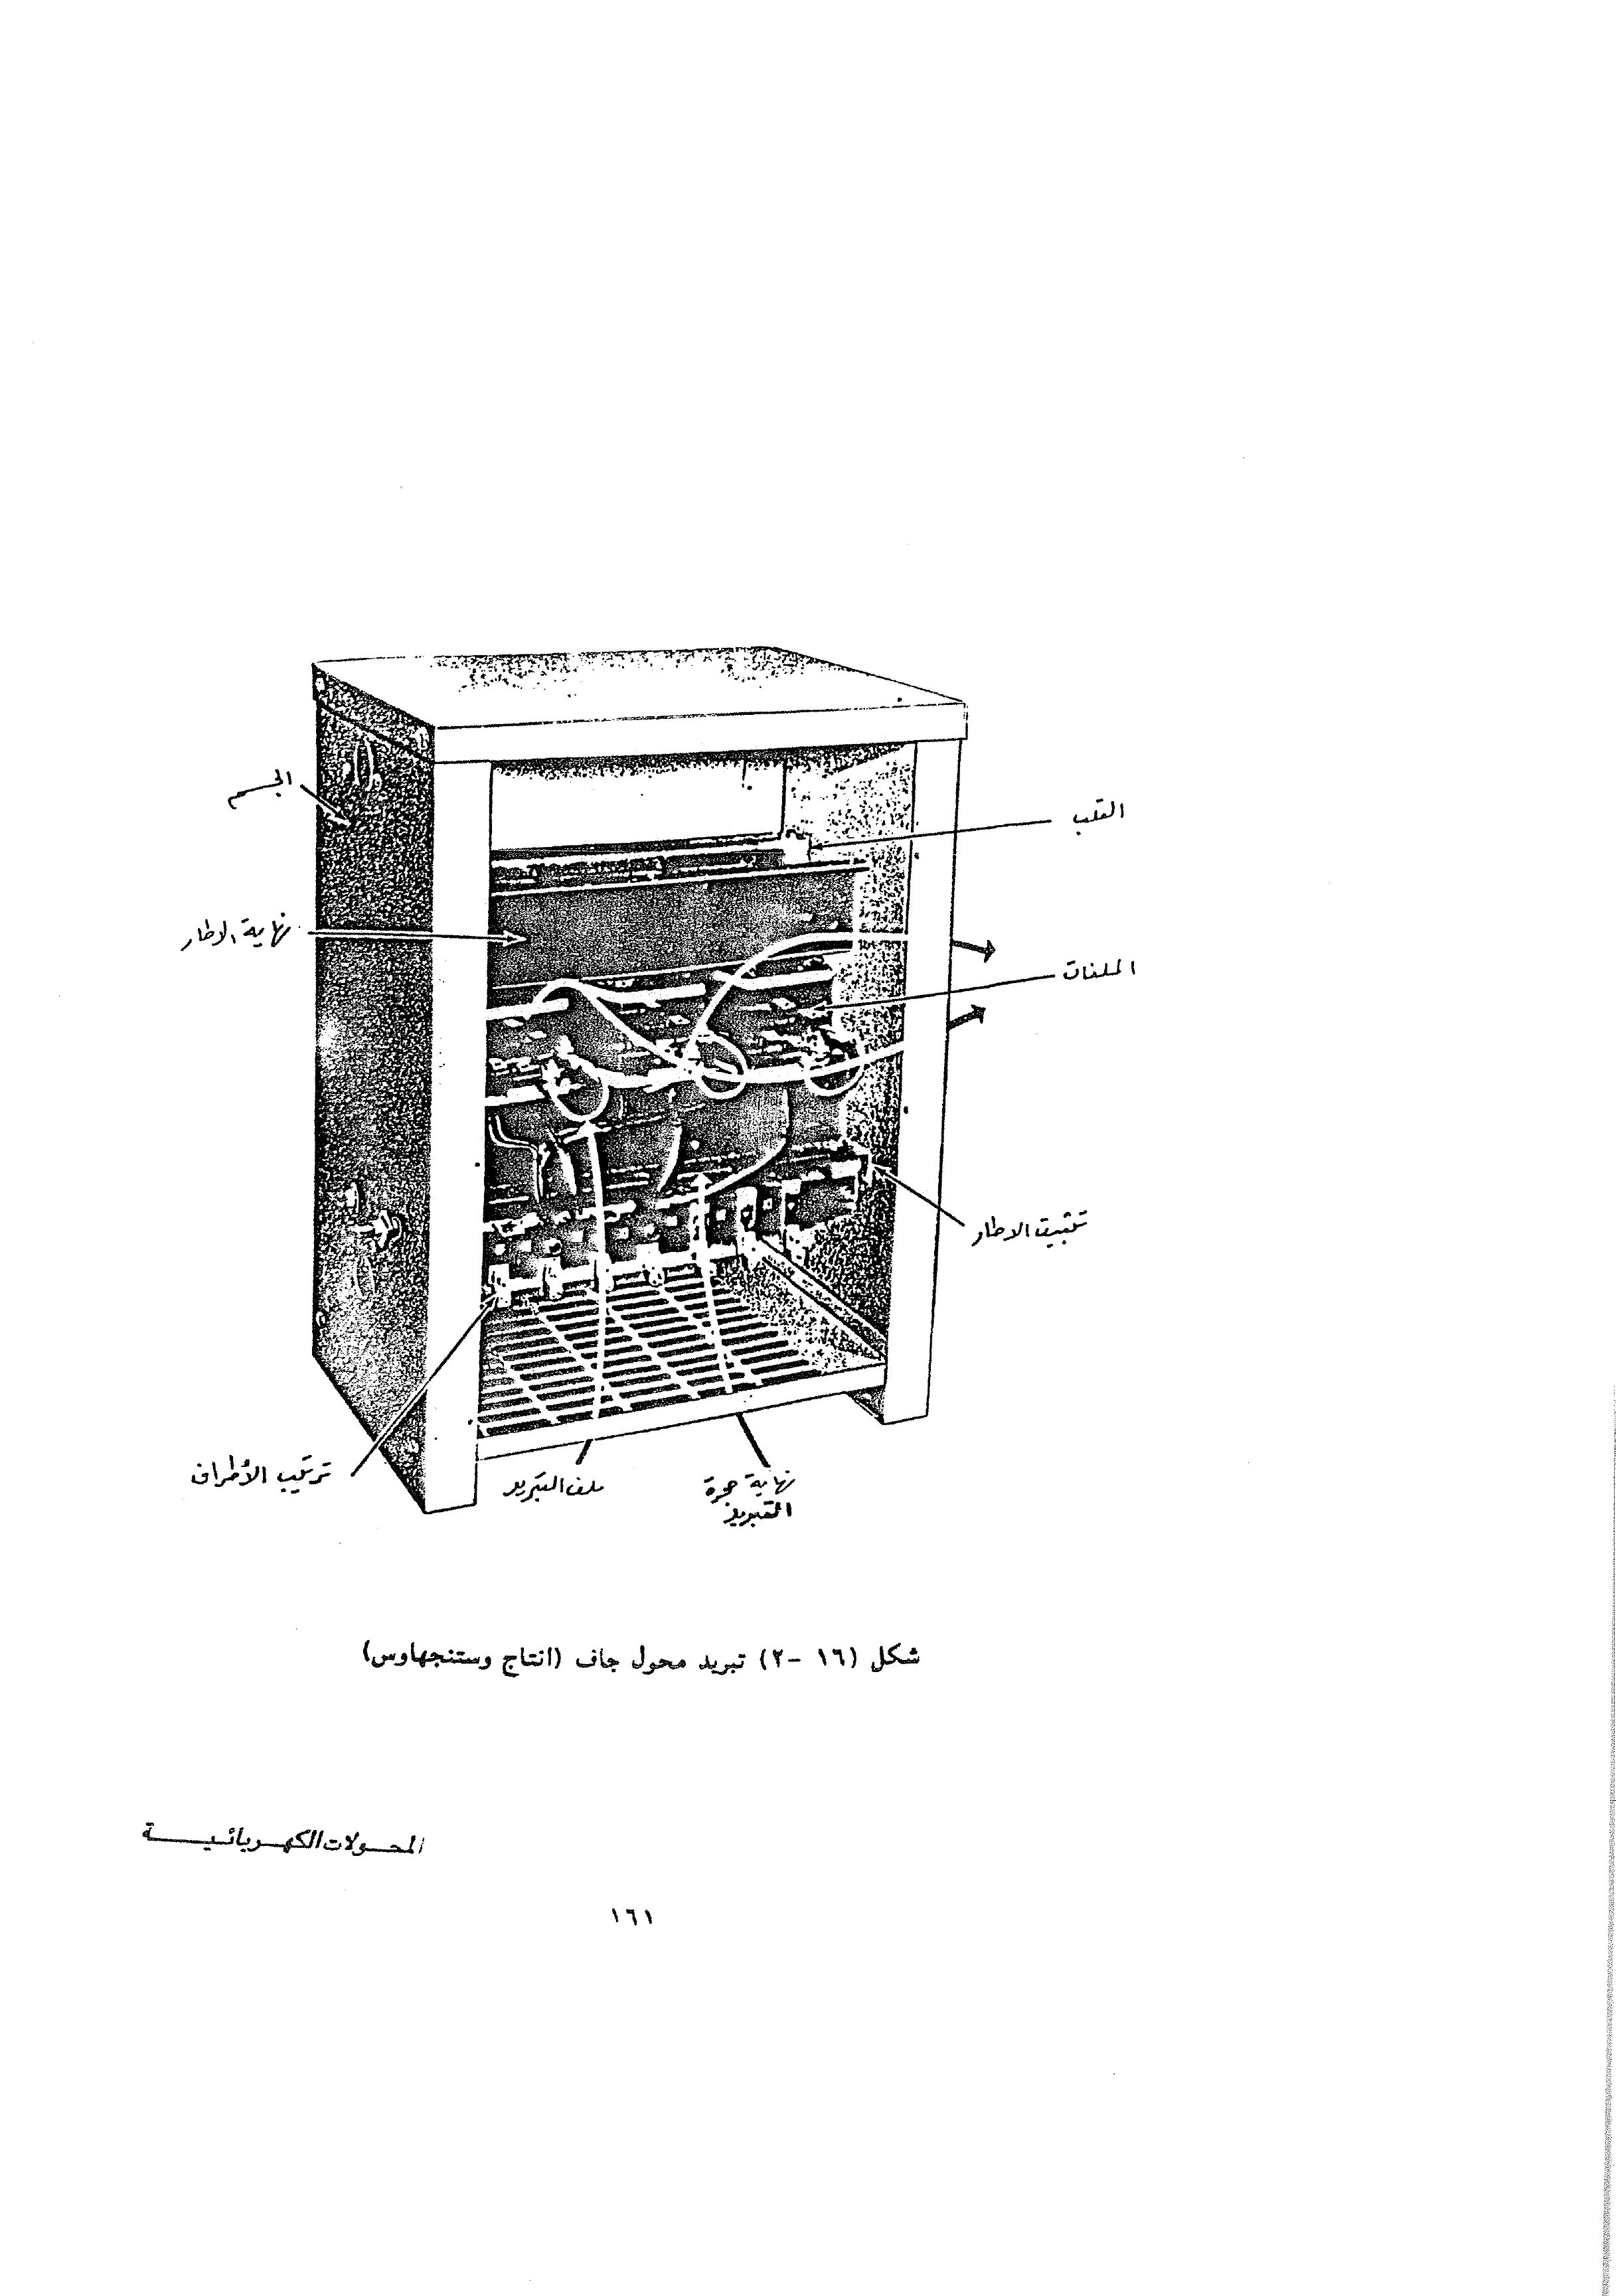 الجسم
القلب
نهاية الاطار
الملفات
تثبيت الاطار
تركيب الأطراف
ملف التبريد
نهاية حجرة
التبريد
شكل (١٦ -٢) تبريد محول جاف (انتاج وستنجهاوس)
المحولات الكهربائية
١٦١